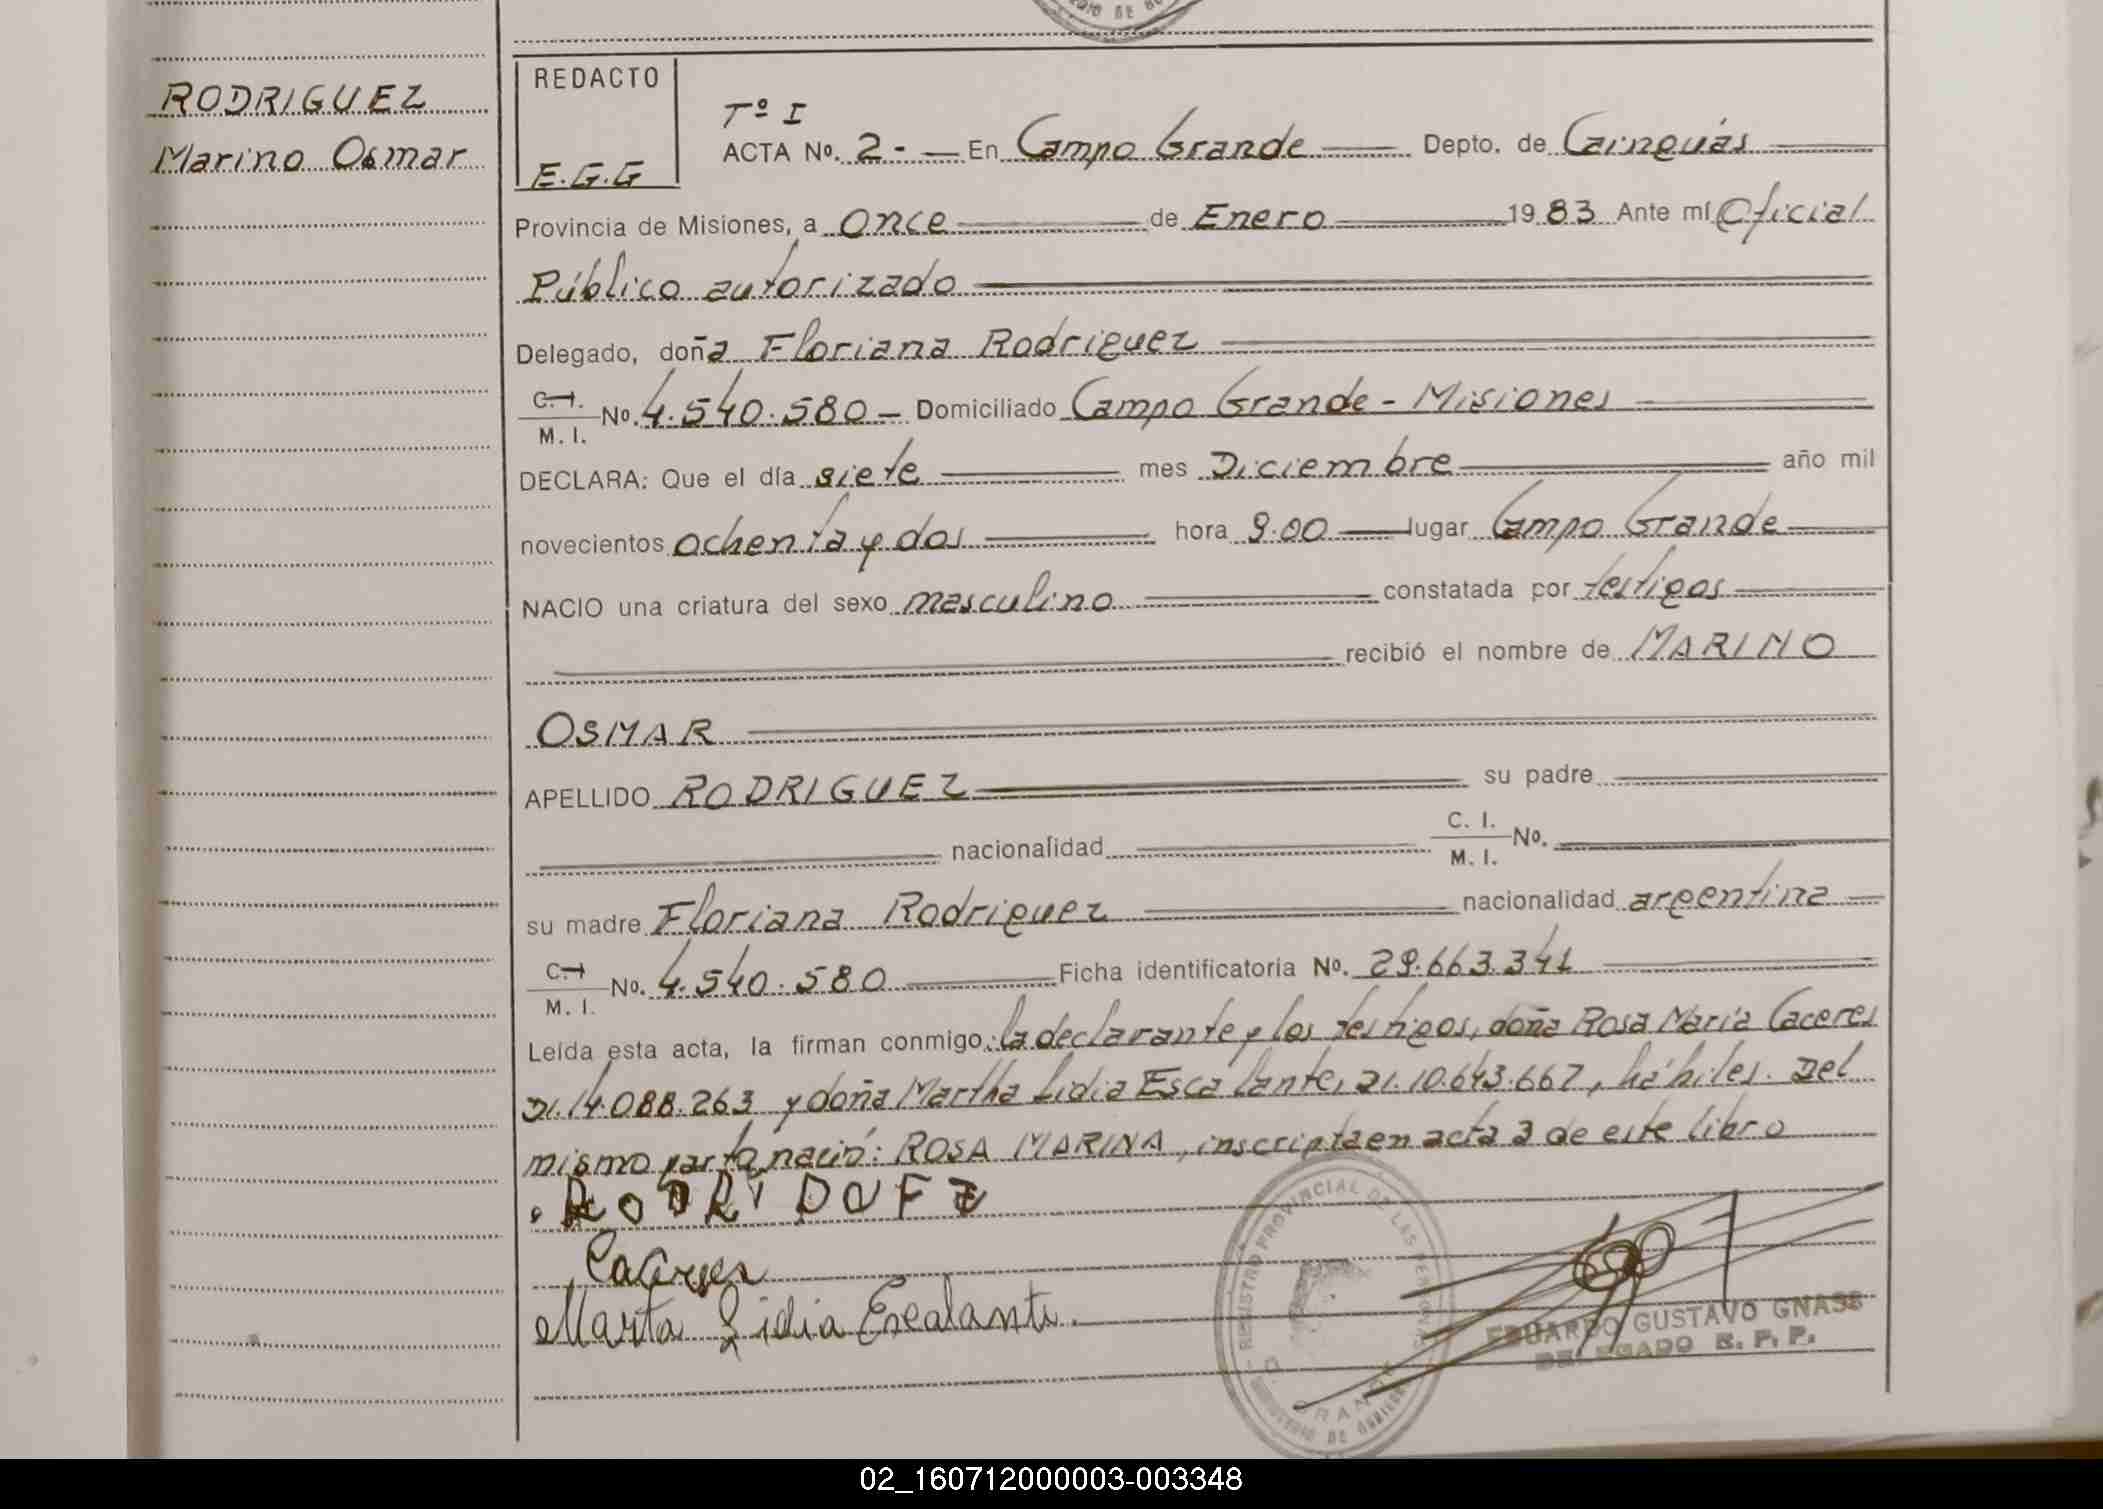 RODRIGUEZ
Marino Osmar
REDACTO
E.G.G
Tº I
ACTA Nº. 2 - En Campo Grande Depto. de Cainguás
Provincia de Misiones, a once de Enero 1983 Ante mí Oficial
Público autorizado
Delegado, doña Floriana Rodriguez
C. I. M. I. Nº. 4.540.580 - Domiciliado Campo Grande - Misiones
DECLARA: Que el día siete mes Diciembre año mil
novecientos ochenta y dos hora 9.00 lugar Campo Grande
NACIO una criatura del sexo masculino constatada por testigos
recibió el nombre de MARINO
OSMAR
APELLIDO RODRIGUEZ su padre
nacionalidad C. I. M. I. Nº.
su madre Floriana Rodriguez nacionalidad argentina
C. I. M. I. Nº. 4.540.580 Ficha identificatoria Nº. 29.663.341
Leída esta acta, la firman conmigo: la declarante y los testigos, doña Rosa María Caceres
DI. 14.088.263 y doña Martha Lidia Escalante, DI. 10.643.667, hábiles. Del
mismo parto nació: ROSA MARINA, inscripta en acta 3 de este libro
Caceres
Marta Lidia Escalante.
REGISTRO PROVINCIAL DE LAS PERSONAS
MINISTERIO DE GOBIERNO
EDUARDO GUSTAVO GNASS
DELEGADO R. P. P.
02_160712000003-003348